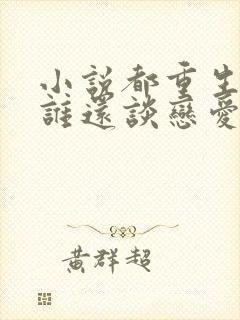 小說都重生
誰還談戀愛
黃群超